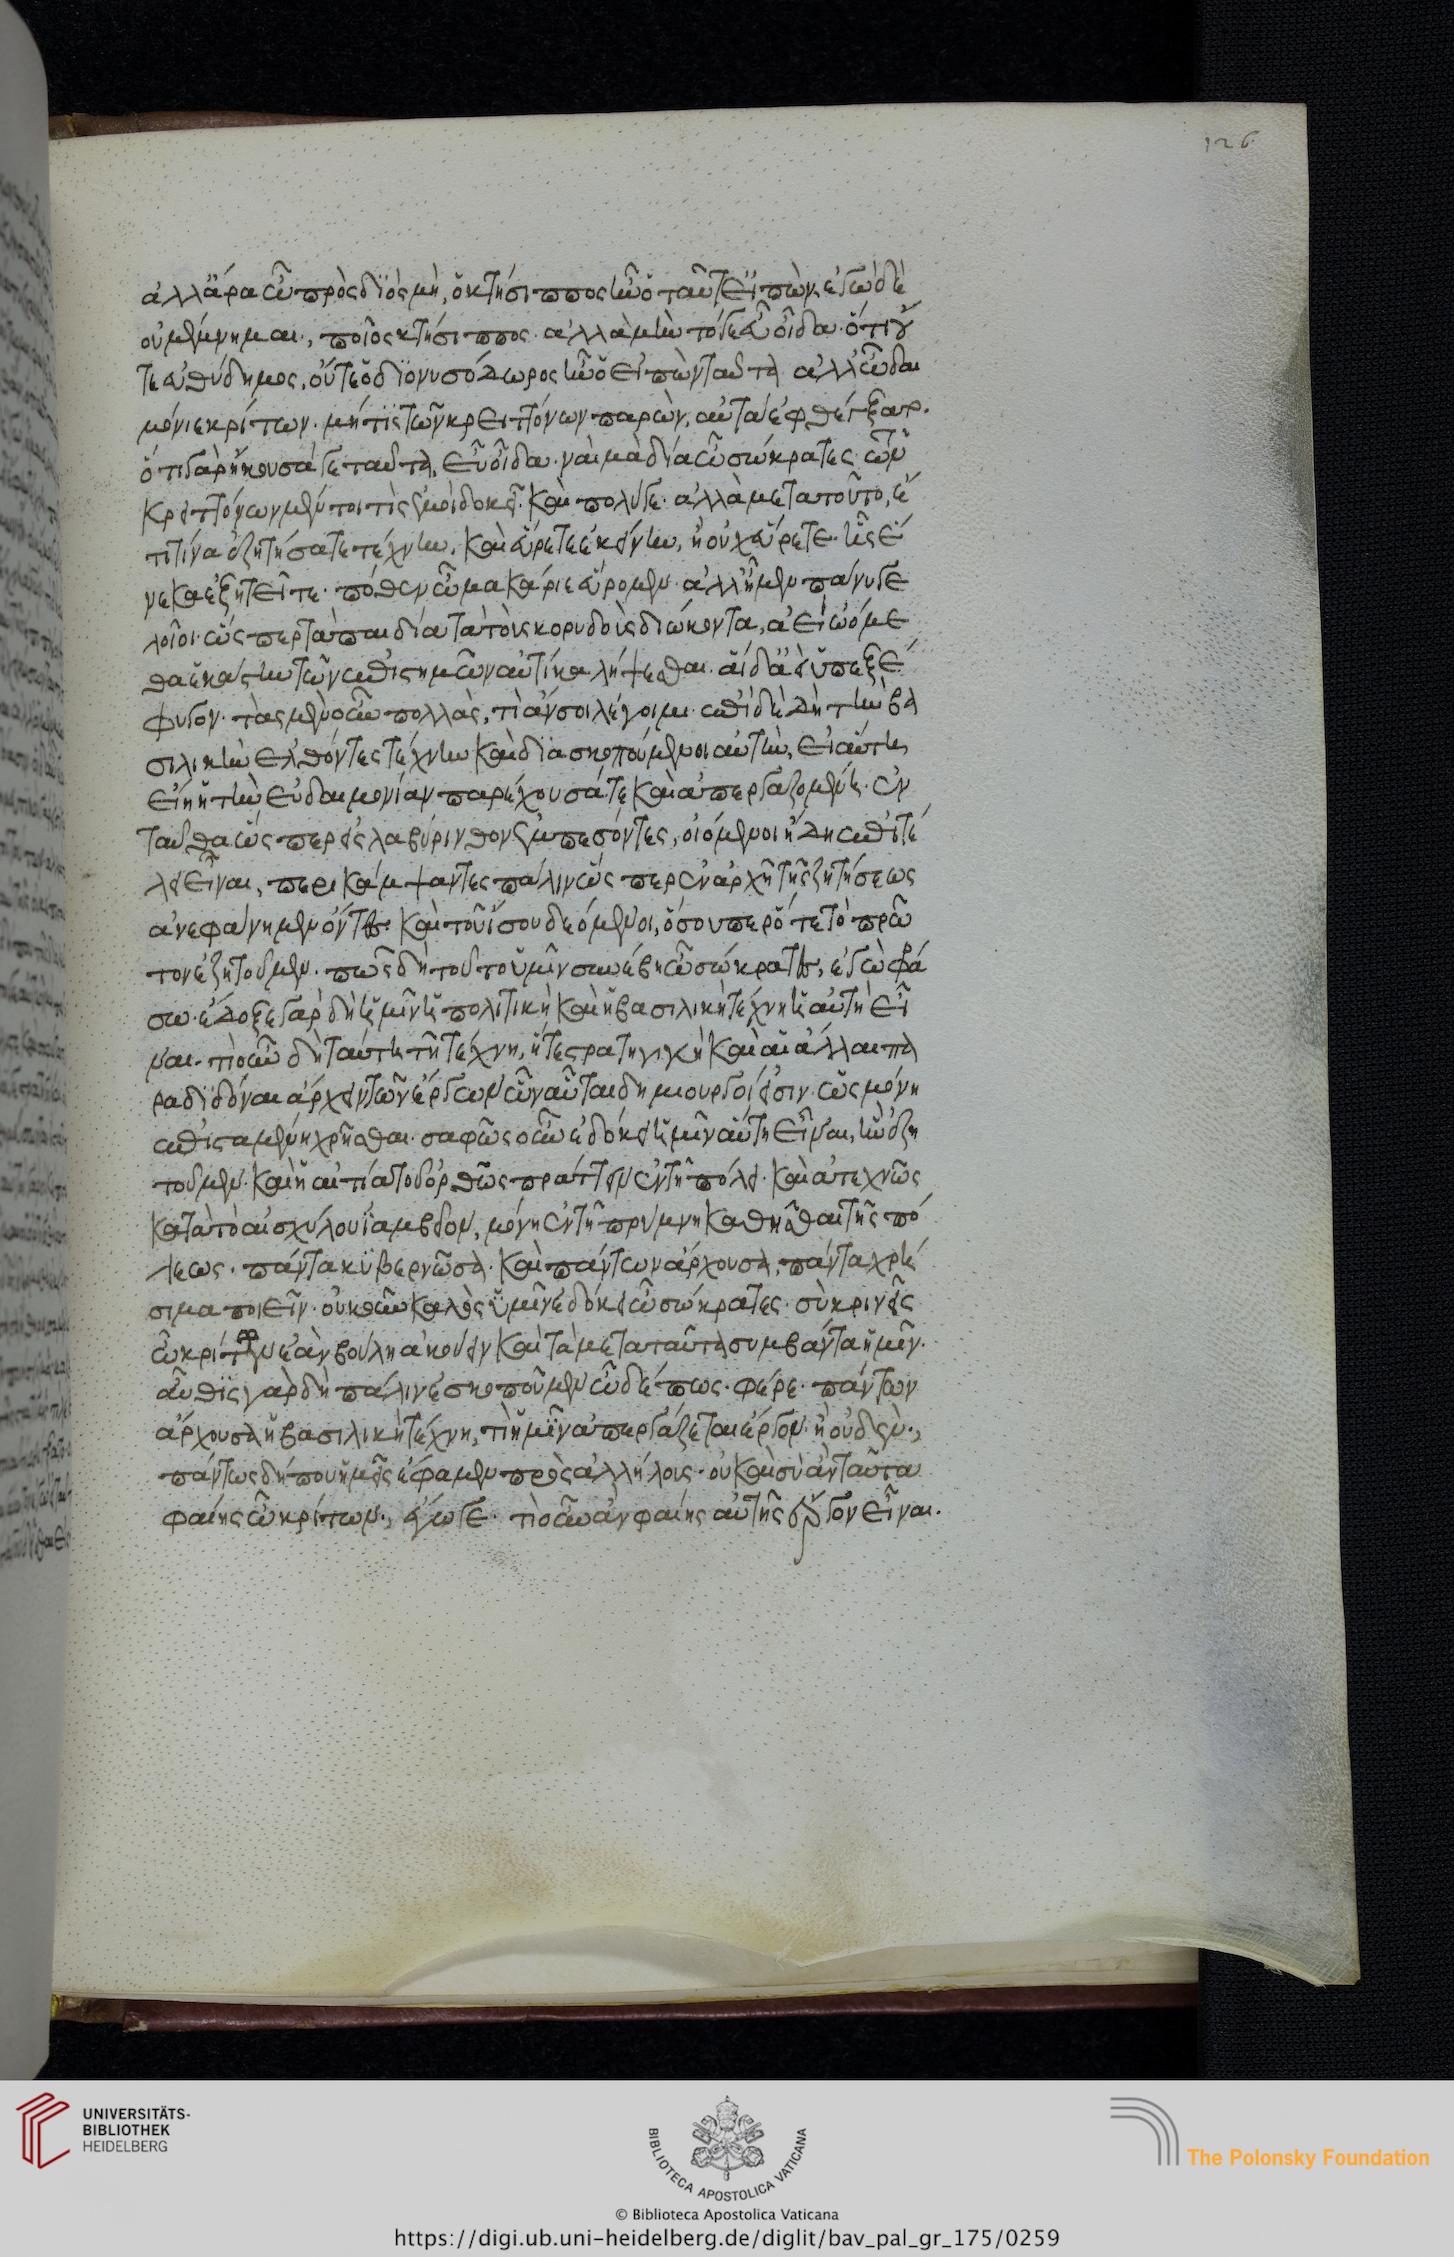 126
ἀλλ' ἄρα ὦ πρὸς διὸς μὴ, ὁ κτήσιππος ἦν ὁ ταῦτ' εἰπὼν, ἐγὼ δὲ
οὐ μέμνημαι., ποῖος κτήσιππος· ἀλλὰ μὴν τόγε εὖ οἶδα· ὅτι οὔ
τε εὐθύδημος, οὔτε ὁ διονυσόδωρος ἦν ὁ εἰπὼν ταῦτα ἀλλ' ὦ δαι
μόνιε κρίτων· μή τις τῶν κρειττόνων παρὼν, αὐτὰ ἐφθέγξατο·
ὅτι γὰρ ἤκουσά γε ταῦτα, εὖ οἶδα· ναὶ μὰ δία ὦ σώκρατες· τῶν
κρειττόνων μέν τοι τὶς ἐμοὶ δοκεῖ· καὶ πολύ γε· ἀλλὰ μετὰ τοῦτο, ἔ
τι τίνα ἐζητήσατε τέχνην, καὶ εὕρετε ἐκείνην, ἢ οὐχ εὕρετε ἧς ἕ
νεκα ἐζητεῖτε· πόθεν ὦ μακάριε εὕρομεν· ἀλλ' ἦμεν πάνυ γε
λοῖοι· ὥσπερ τὰ παιδία τὰ τοὺς κορυδοὺς διώκοντα, ἀεὶ ᾠόμε
θα ἑκάστην τῶν ἐπιστημῶν αὐτίκα λήψεσθαι· αἱ δ' ἀεὶ ὑπεξέ
φυγον· τὰς μὲν οὖν πολλὰς, τί ἄν σοι λέγοιμι· ἐπὶ δὲ δὴ τὴν βα
σιλικὴν ἐλθόντες τέχνην καὶ διασκοπούμενοι αὐτὴν, εἰ αὕτη
εἴη ἡ τὴν εὐδαιμονίαν παρέχουσά τε καὶ ἀπεργαζομένη· ἐν
ταῦθα ὥσπερ εἰς λαβύρινθον ἐμπεσόντες, οἰόμενοι ἤδη ἐπὶ τέ
λει εἶναι, περικάμψαντες πάλιν ὥσπερ ἐν ἀρχῇ τῆς ζητήσεως
ἀνεφάνημεν ὄντες· καὶ τοῦ ἴσου δεόμενοι, ὅσου περ ὅτε τὸ πρῶ
τον ἐζητοῦμεν· πῶς δὴ τοῦτο ὑμῖν συνέβη ὦ σώκρατες, ἐγὼ φρά
σω· ἔδοξε γὰρ δὴ ἡμῖν ἡ πολιτικὴ καὶ ἡ βασιλικὴ τέχνη ἡ αὐτὴ εἶ
ναι· τί οὖν δὴ ταύτη τῇ τέχνῃ, ἥ τε στρατηγικὴ καὶ αἱ ἄλλαι πα
ραδιδόναι ἄρχειν τῶν ἔργων ὧν αὗται δημιουργοί εἰσιν· ὡς μόνη
ἐπισταμένη χρῆσθαι· σαφῶς οὖν ἐδόκει ἡμῖν αὕτη εἶναι, ἣν ἐζη
τοῦμεν· καὶ ἡ αἰτία τοῦ ὀρθῶς πράττειν ἐν τῇ πόλει· καὶ ἀτεχνῶς
κατὰ τὸ αἰσχύλου ἰαμβεῖον, μόνη ἐν τῇ πρύμνῃ καθῆσθαι τῆς πό
λεως· πάντα κυβερνῶσα· καὶ πάντων ἄρχουσα, πάντα χρή
σιμα ποιεῖν· οὐκοῦν καλῶς ὑμῖν ἐδόκει ὦ σώκρατες· σὺ κρινεῖς
ὦ κρίτων ἐὰν βούλῃ ἀκούειν καὶ τὰ μετὰ ταῦτα συμβάντα ἡμῖν·
αὖθις γὰρ δὴ πάλιν ἐσκοποῦμεν ὧδέ πως· φέρε· πάντων
ἄρχουσα ἡ βασιλικὴ τέχνη, τὶ ἡμῖν ἀπεργάζεται ἔργον· ἢ οὐδέν·,
πάντως δήπου ἡμεῖς ἔφαμεν πρὸς ἀλλήλους· οὐ καὶ σὺ ἂν ταῦτα
φαίης ὦ κρίτων·, ἔγωγε· τί οὖν ἂν φαίης αὐτῆς ἔργον εἶναι·
UNIVERSITÄTS-
BIBLIOTHEK
HEIDELBERG
BIBLIOTECA APOSTOLICA VATICANA
The Polonsky Foundation
© Biblioteca Apostolica Vaticana
https://digi.ub.uni-heidelberg.de/diglit/bav_pal_gr_175/0259